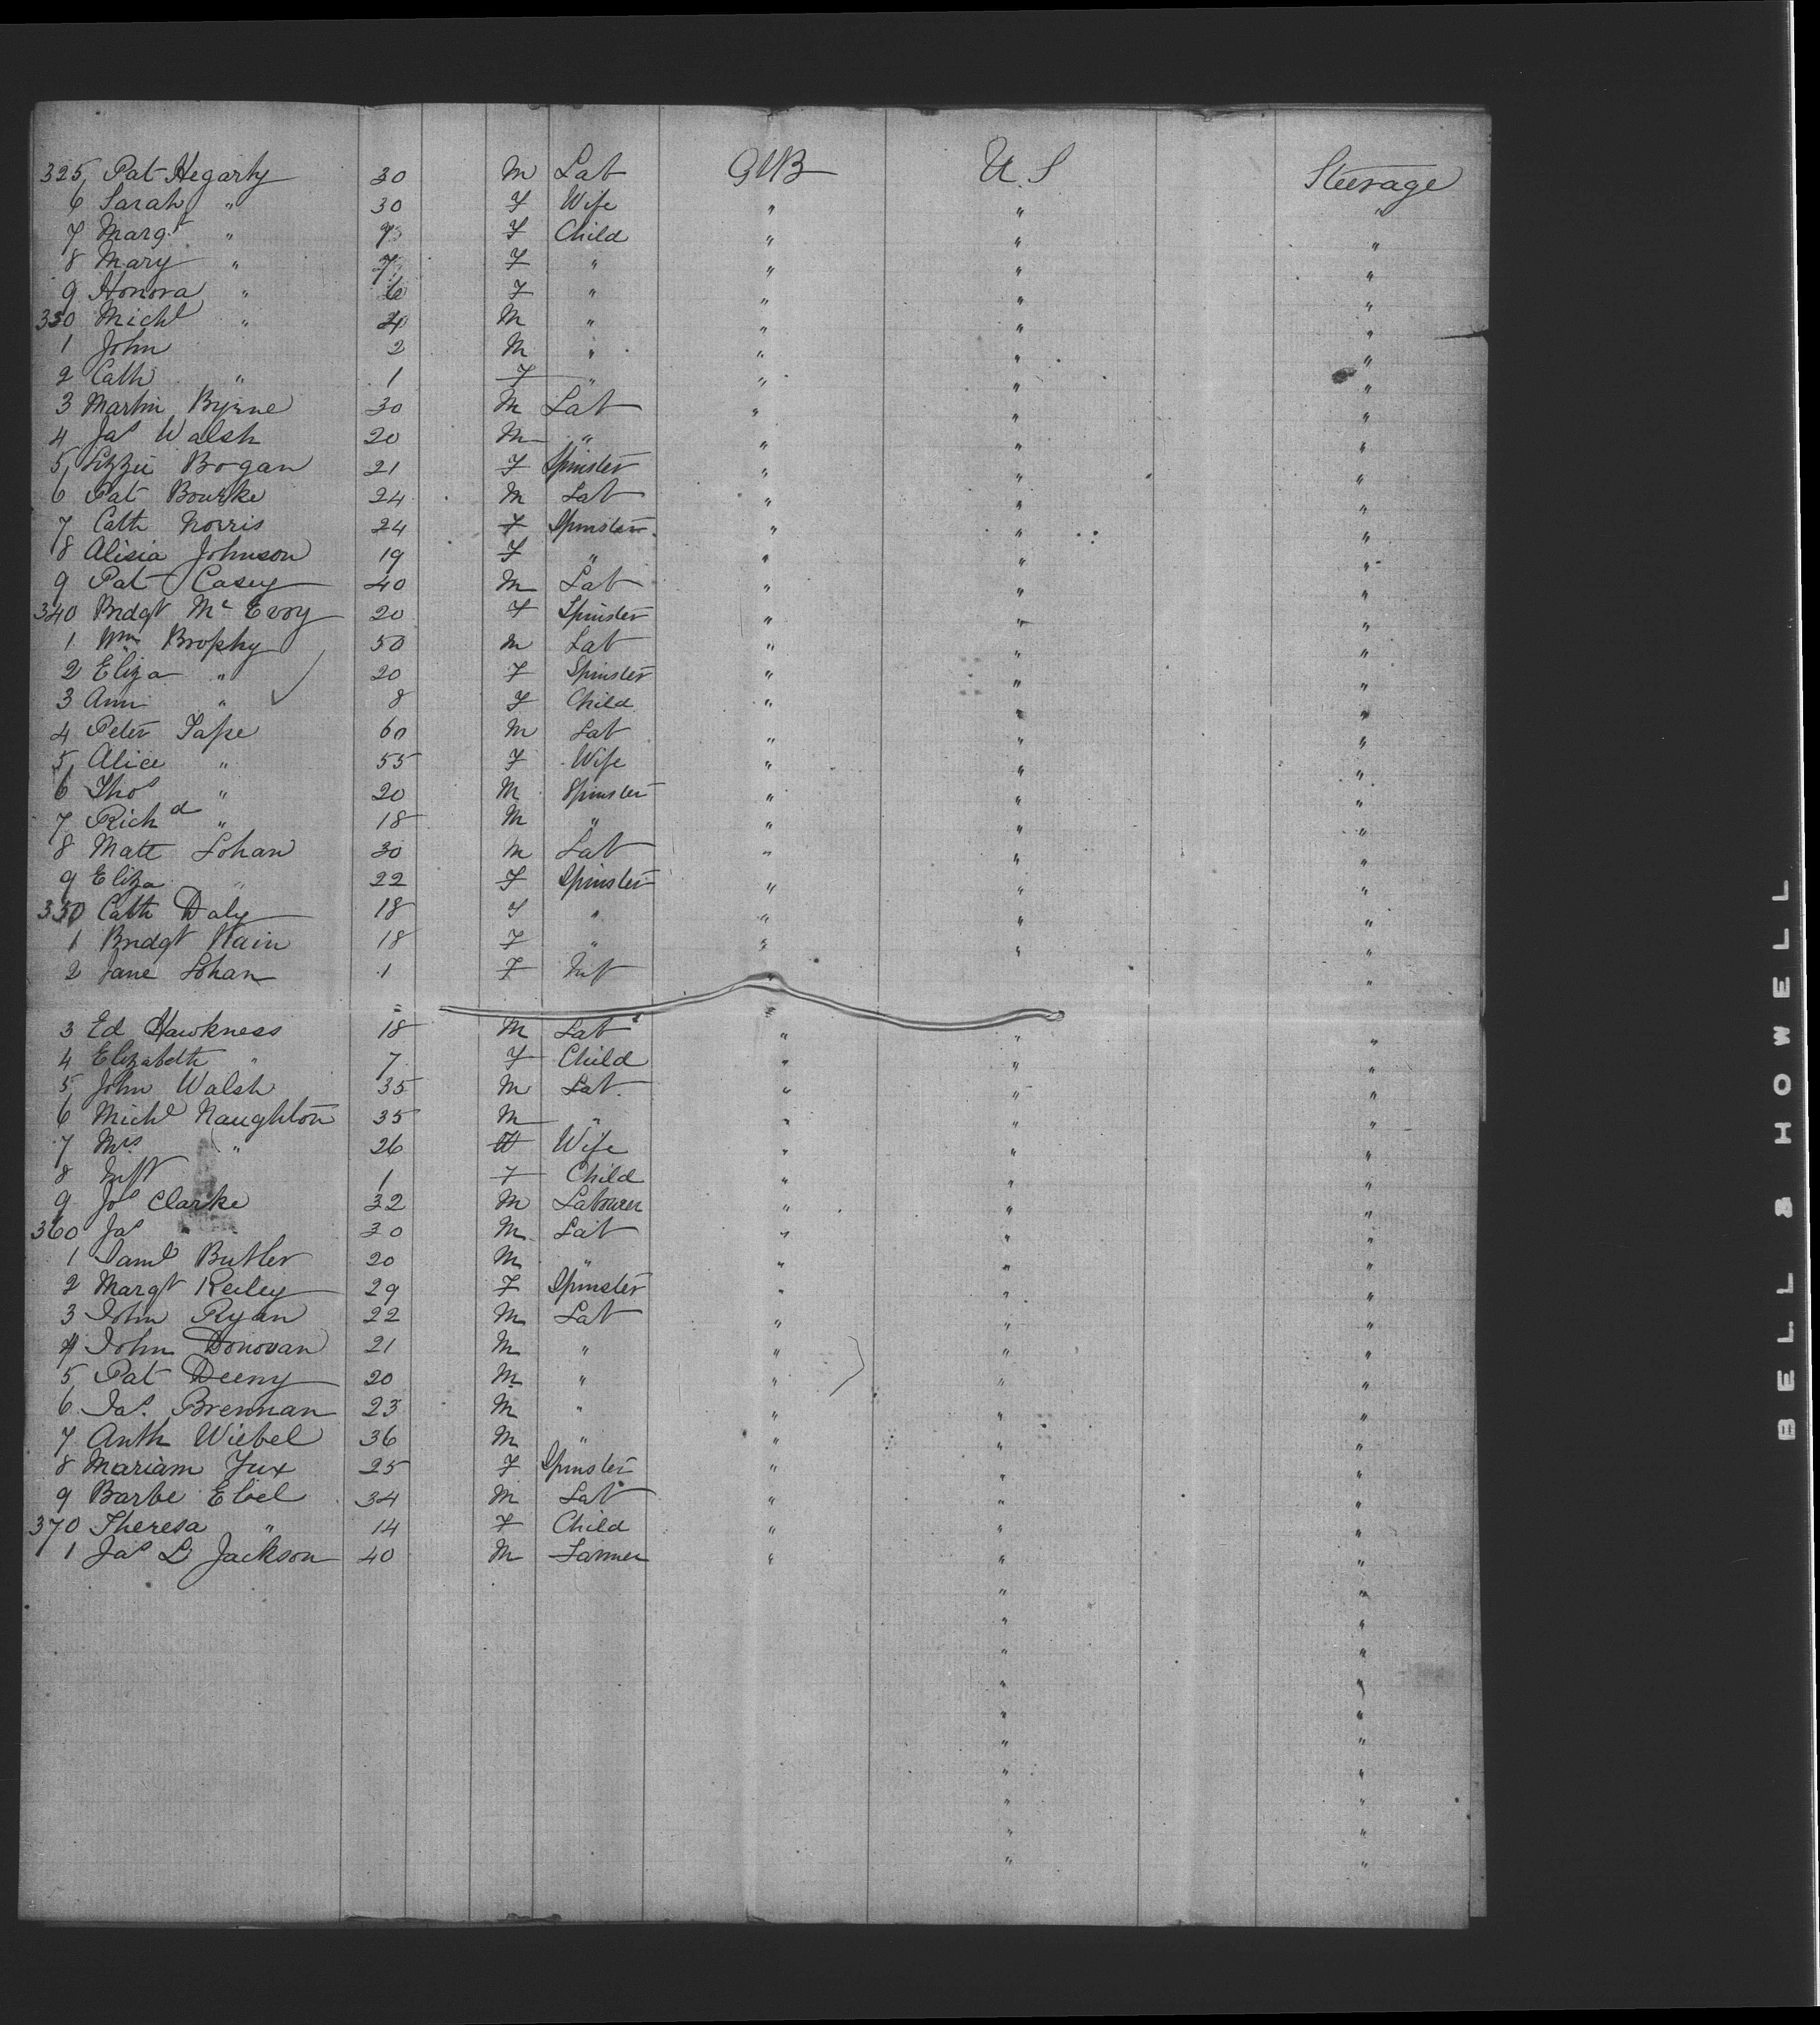 325 Pat Hegarty 30 M Lab GtB U.S Steerage
6 Sarah " 30 F Wife " " "
7 Margt " 9 F Child " " "
8 Mary " 7 F " " " "
9 Honora " 6 F " " " "
330 Michl " 4 M " " " "
1 John 2 M " " " "
2 Cath " 1 F " " " "
3 Martin Byrne 30 M Lab " " "
4 Jas Walsh 20 M " " " "
5 Lizzie Bogan 21 F Spinster " " "
6 Pat Bourke 24 M Lab " " "
7 Cath Norris 24 F Spinster " " "
8 Alisia Johnson 19 F " " " "
9 Pat Casey 40 M Lab " " "
340 Bridgt Mc Evoy 20 F Spinster " " "
1 Wm Brophy 50 M Lab " " "
2 Eliza " 20 F Spinster " " "
3 Ann " 8 F Child " " "
4 Peter Tape 60 M Lab " " "
5 Alice " 55 F Wife " " "
6 Thos " 20 M Spinster " " "
7 Richd " 18 M " " " "
8 Matt Lohan 30 M Lab " " "
9 Eliza " 22 F Spinster " " "
350 Cath Daly 18 F " " " "
1 Bridgt 18 F " " " "
2 Jane Lohan 1 F Inft " "
3 Ed Hawkness 18 M Lab " " "
4 Elizabeth " 7 F Child " " "
5 John Walsh 35 M Lab " " "
6 Michl Naughton 35 M " " " "
7 Mrs " 26 Wife " " "
8 Infft 1 F Child " " "
9 Jos Clarke 32 M Labourer " " "
360 Jas 30 M Lab " " "
1 Saml Butler 20 M " " " "
2 Margt Reiley 29 F Spinster " " "
3 John Ryan 22 M Lab " " "
4 John Donovan 21 M " " " "
5 Pat Deeny 20 M " " " "
6 Jas. Brennan 23 M " " " "
7 Anth Wiebel 36 M " " " "
8 Mariam Fux 25 F Spinster " " "
9 Barbe Ebel 34 M Lab " " "
370 Theresa " 14 F Child " " "
1 Jas L Jackson 40 M Farmer " " "
" "
" "
" "
" "
" "
" "
" "
" "
" "
" "
BELL & HOWELL